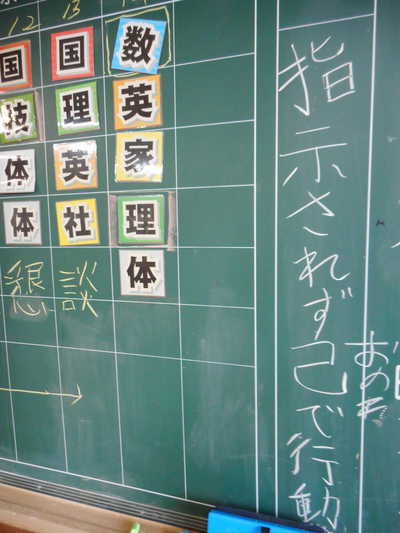 12 13
国 国 数
技 理 英
体 英 家
体 社 理
懇談 体
指示されず己で行動